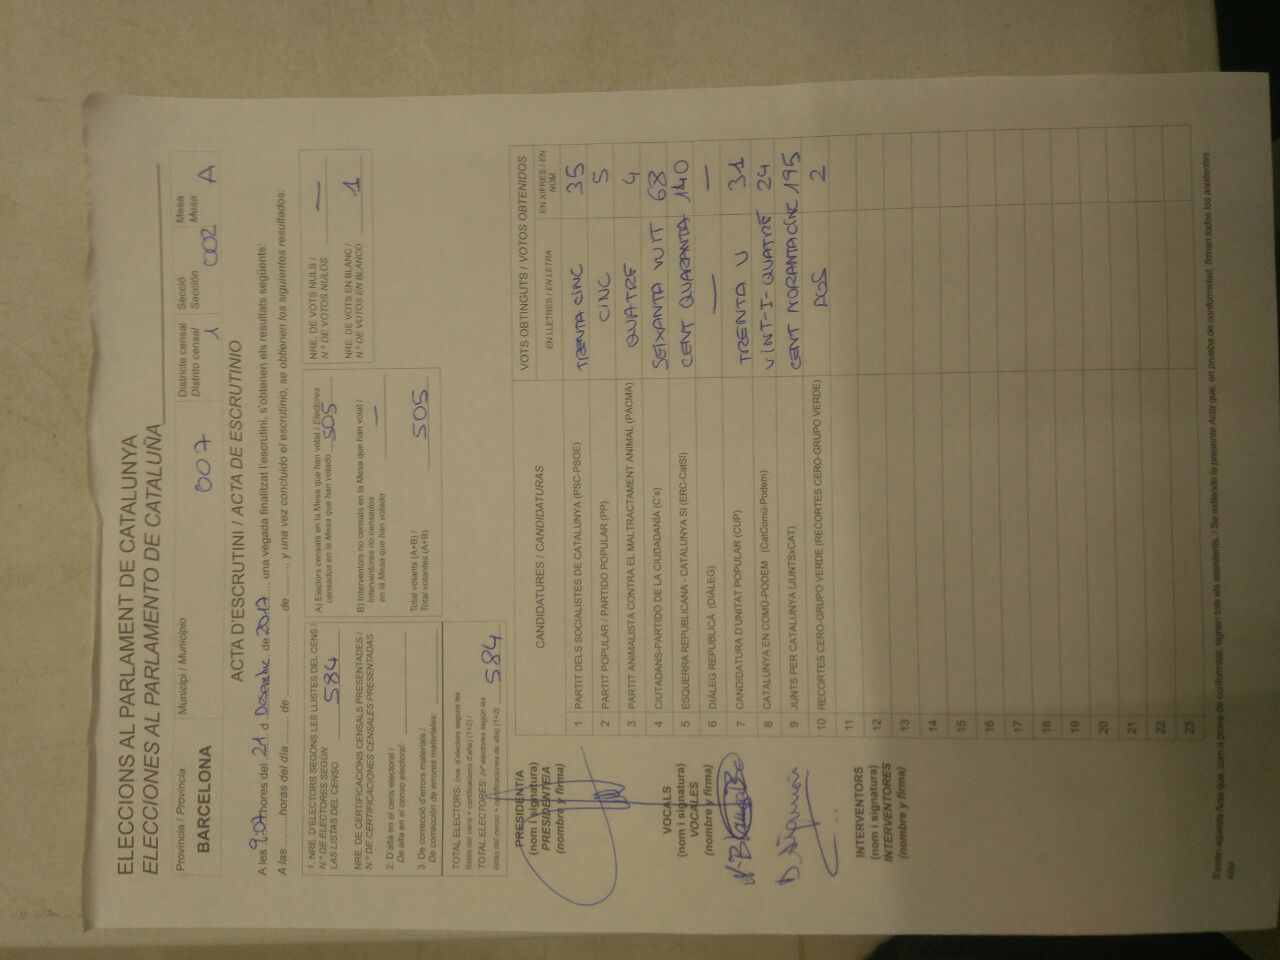 ELECCIONS AL PARLAMENT DE CATALUNYA
ELECCIONES AL PARLAMENTO DE CATALUÑA
Província / Provincia
BARCELONA
Municipi / Municipio
007
Districte censal
Distrito censal
1
Secció
Sección
002
Mesa
Mesa
A
ACTA D'ESCRUTINI / ACTA DE ESCRUTINIO
A les 9:07 hores del 21 d Desembre de 2017, una vegada finalitzat l'escrutini, s'obtenen els resultats següents:
A las ........ horas del día ........ de ........................ de ........, y una vez concluido el escrutinio, se obtienen los siguientes resultados:
1. NRE. D'ELECTORS SEGONS LES LLISTES DEL CENS /
N.º DE ELECTORES SEGÚN
LAS LISTAS DEL CENSO
584
NRE. DE CERTIFICACIONS CENSALS PRESENTADES /
N.º DE CERTIFICACIONES CENSALES PRESENTADAS
2. D'alta en el cens electoral /
De alta en el censo electoral:
3. De correcció d'errors materials /
De corrección de errores materiales:
TOTAL ELECTORS: (nre. d'electors segons les
llistes del cens + certificacions d'alta) (1+2) /
TOTAL ELECTORES: (nº electores según las
listas del censo + certificaciones de alta) (1+2)
584
A) Electors censats en la Mesa que han votat / Electores
censados en la Mesa que han votado
505
B) Interventors no censats en la Mesa que han votat /
Interventores no censados
en la Mesa que han votado
—
Total votants (A+B) /
Total votantes (A+B)
505
NRE. DE VOTS NULS /
N.º DE VOTOS NULOS
—
NRE. DE VOTS EN BLANC /
N.º DE VOTOS EN BLANCO
1
CANDIDATURES / CANDIDATURAS
VOTS OBTINGUTS / VOTOS OBTENIDOS
EN LLETRES / EN LETRA
EN XIFRES / EN NÚM.
1 PARTIT DELS SOCIALISTES DE CATALUNYA (PSC-PSOE) TRENTA CINC 35
2 PARTIT POPULAR / PARTIDO POPULAR (PP) CINC 5
3 PARTIT ANIMALISTA CONTRA EL MALTRACTAMENT ANIMAL (PACMA) QUATRE 4
4 CIUTADANS-PARTIDO DE LA CIUDADANÍA (C's) SEIXANTA VUIT 68
5 ESQUERRA REPUBLICANA - CATALUNYA SÍ (ERC-CatSí) CENT QUARANTA 140
6 DIÀLEG REPUBLICÀ (DIÀLEG) — —
7 CANDIDATURA D'UNITAT POPULAR (CUP) TRENTA U 31
8 CATALUNYA EN COMÚ-PODEM (CatComú-Podem) VINT-I-QUATRE 24
9 JUNTS PER CATALUNYA (JUNTSxCAT) CENT NORANTACINC 195
10 RECORTES CERO-GRUPO VERDE (RECORTES CERO-GRUPO VERDE) DOS 2
11
12
13
14
15
16
17
18
19
20
21
22
23
PRESIDENT/A
(nom i signatura)
PRESIDENTE/A
(nombre y firma)
VOCALS
(nom i signatura)
VOCALES
(nombre y firma)
INTERVENTORS
(nom i signatura)
INTERVENTORES
(nombre y firma)
S'estén aquesta Acta que, com a prova de conformitat, signen tots els assistents. / Se extiende la presente Acta que, en prueba de conformidad, firman todos los asistentes.